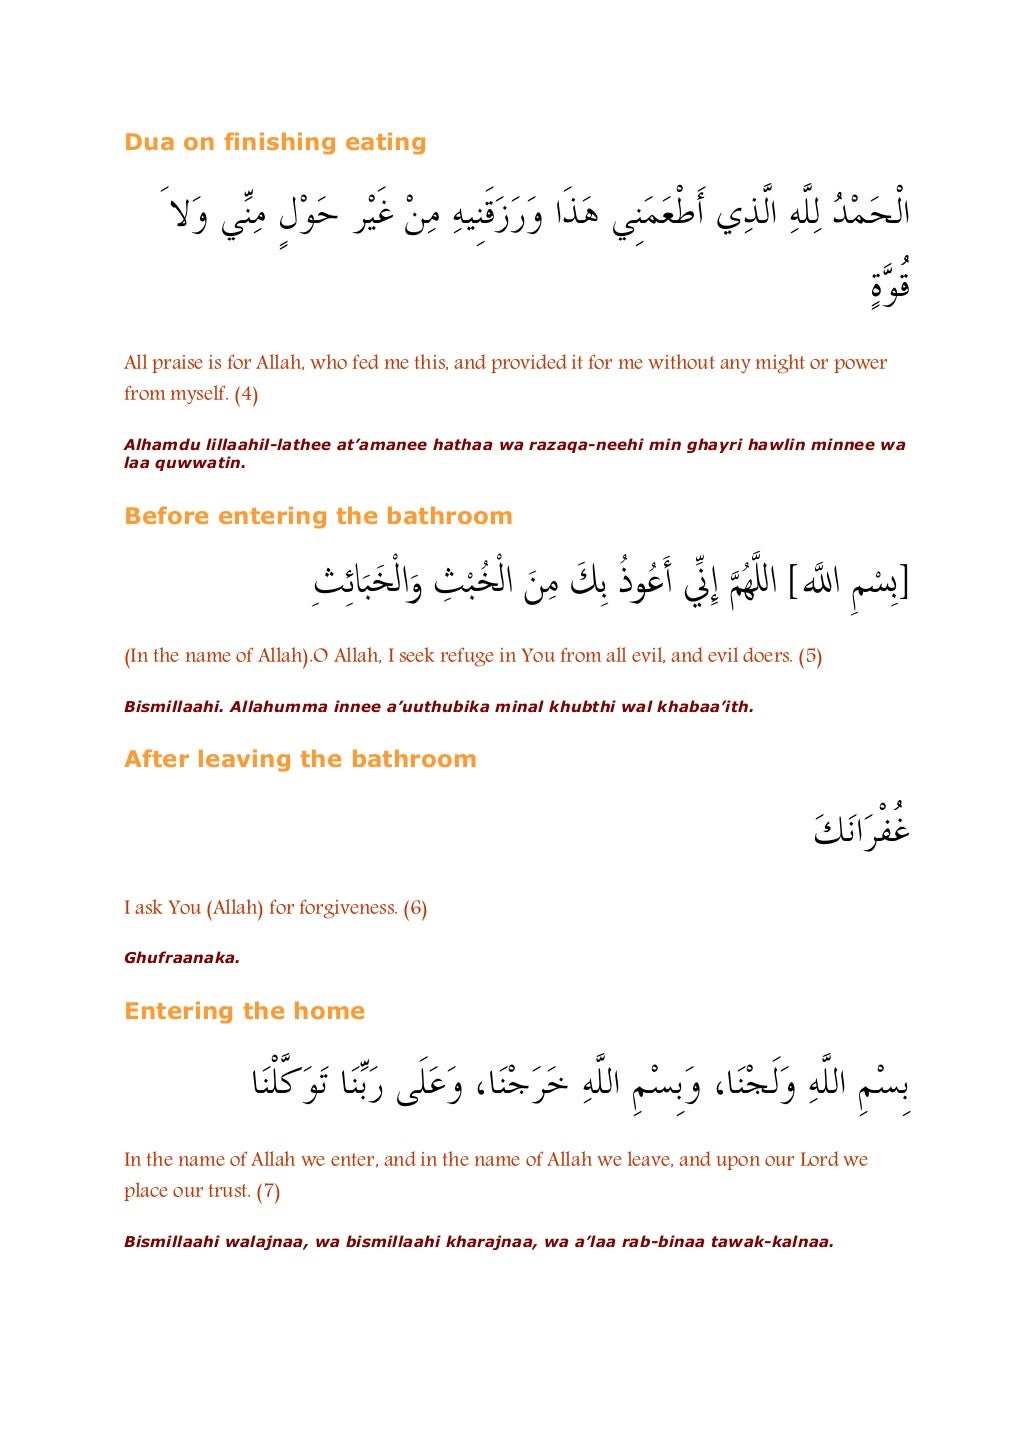 Dua on finishing eating
الْحَمْدُ لِلَّهِ الَّذِي أَطْعَمَنِي هَذَا وَرَزَقَنِيهِ مِنْ غَيْر حَوْلٍ مِنِّي وَلاَ
قُوَّةٍ
All praise is for Allah, who fed me this, and provided it for me without any might or power
from myself. (4)
Alhamdu lillaahil-lathee at’amanee hathaa wa razaqa-neehi min ghayri hawlin minnee wa
laa quwwatin.
Before entering the bathroom
[بِسْمِ اللَّه] اللَّهُمَّ إِنِّي أَعُوذُ بِكَ مِنَ الْخُبْثِ وَالْخَبَائِثِ
(In the name of Allah).O Allah, I seek refuge in You from all evil, and evil doers. (5)
Bismillaahi. Allahumma innee a’uuthubika minal khubthi wal khabaa’ith.
After leaving the bathroom
غُفْرَانَكَ
I ask You (Allah) for forgiveness. (6)
Ghufraanaka.
Entering the home
بِسْمِ اللَّهِ وَلَجْنَا، وَبِسْمِ اللَّهِ خَرَجْنَا، وَعَلَى رَبِّنَا تَوَكَّلْنَا
In the name of Allah we enter, and in the name of Allah we leave, and upon our Lord we
place our trust. (7)
Bismillaahi walajnaa, wa bismillaahi kharajnaa, wa a’laa rab-binaa tawak-kalnaa.